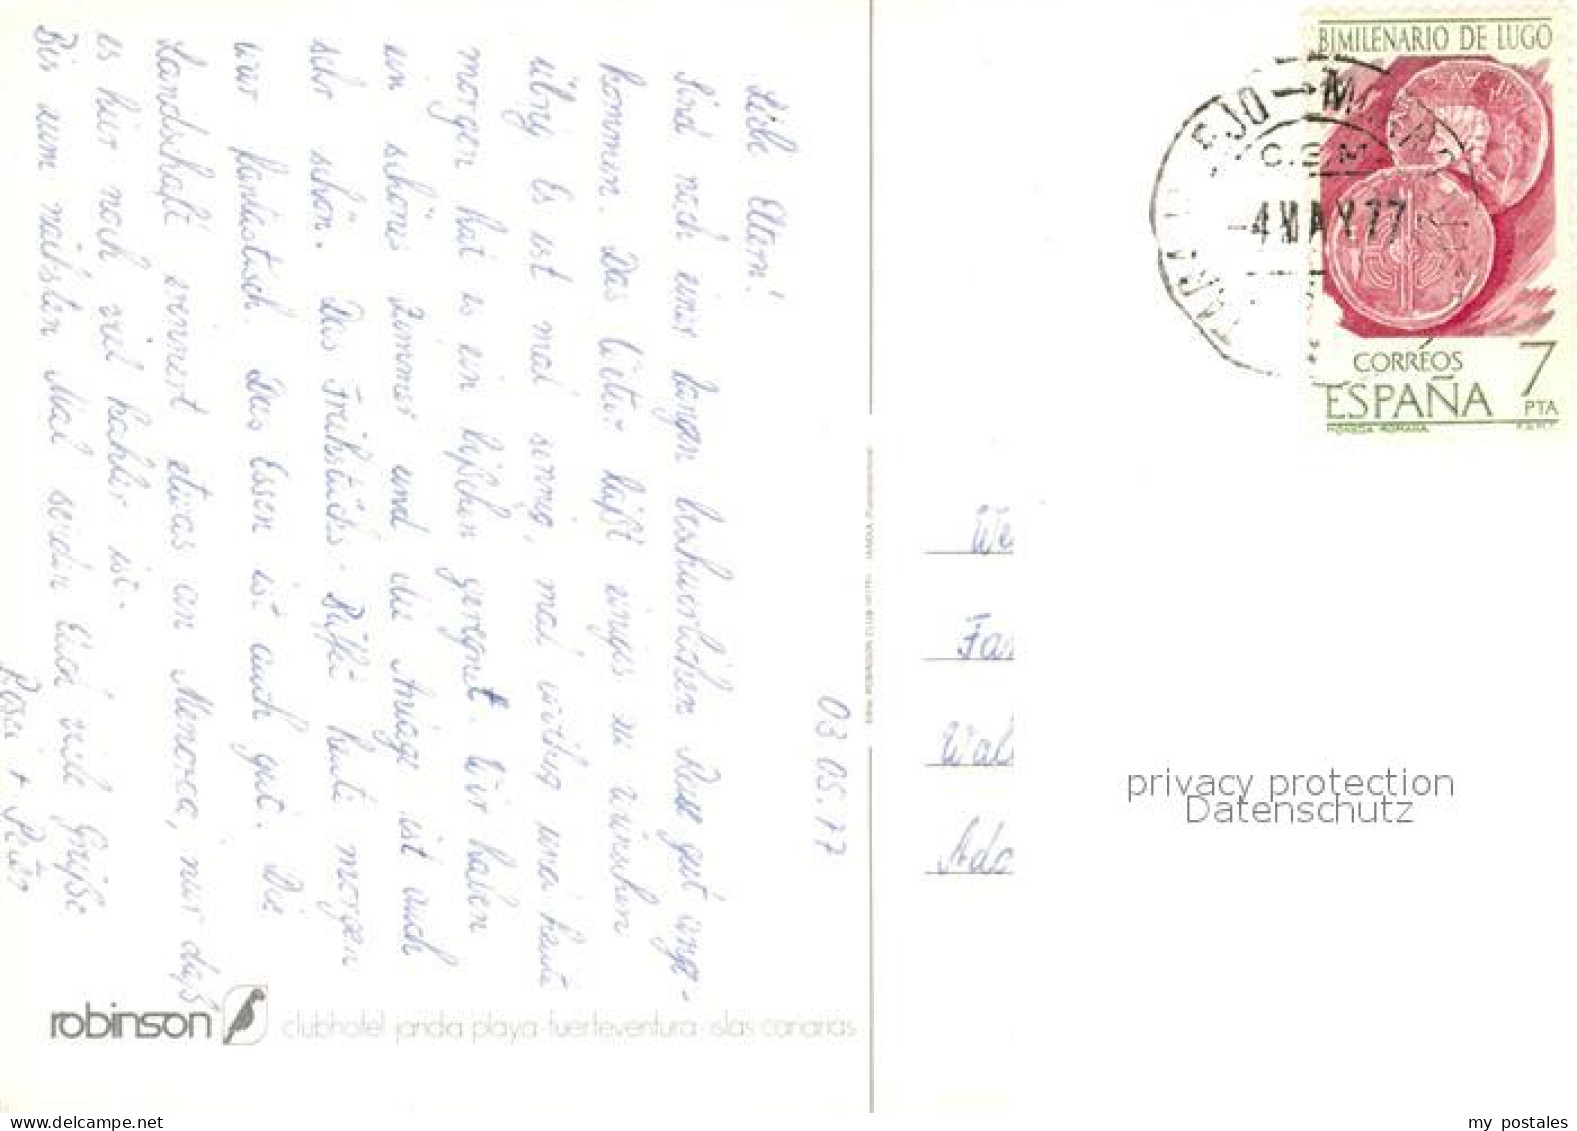 03.05.77
Liebe Eltern!
Sind nach einer langen beschwerlichen Reise gut ange-
kommen. Das Wetter läßt einiges zu wünschen
übrig. Es ist mal sonnig, mal wolkig und heute
morgen hat es ein bißchen geregnet. Wir haben
ein schönes Zimmer und die Anlage ist auch
sehr schön. Das Frühstücks-Büffe heute morgen
war fantastisch. Das Essen ist auch gut. Die
Landschaft erinnert etwas an Menorca, nur daß
es hier noch viel kahler ist.
Bis zum nächsten Mal senden Euch viele Grüße
+ Peter
robinson clubhotel jandia playa · fuerteventura · islas canarias
Editor ROBINSON CLUB HOTEL JANDIA, Fuerteventura
BIMILENARIO DE LUGO
CORREOS
7
ESPAÑA
PTA
MONEDA ROMANA
F.N.M.T.
-4 MAY 77
We
Fam
Wal
Ado
privacy protection
Datenschutz
my postales